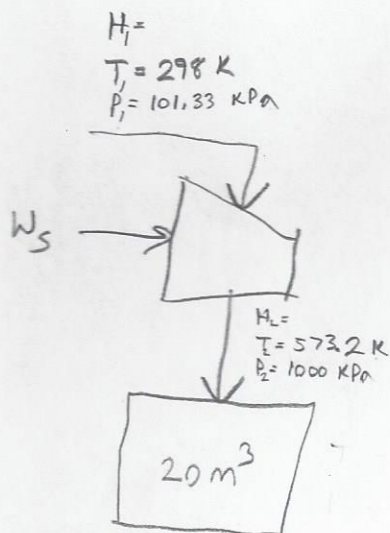 H₁=
T₁ = 298 K
P₁ = 101.33 kPa
Ws
H₂=
T₂ = 573.2 K
P₂ = 1000 kPa
20 m³